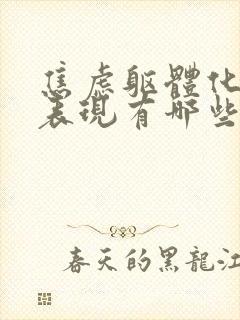 焦虑躯體化
表現有哪些
春天的黑龍江